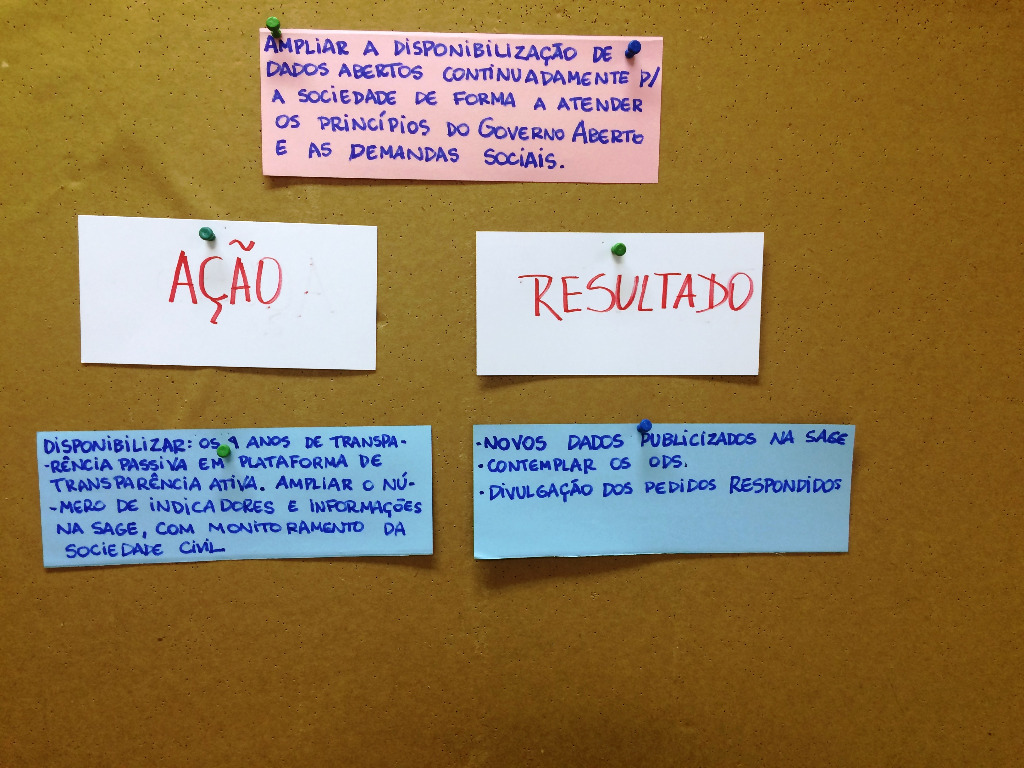 AMPLIAR A DISPONIBILIZAÇÃO DE
DADOS ABERTOS CONTINUADAMENTE P/
A SOCIEDADE DE FORMA A ATENDER
OS PRINCÍPIOS DO GOVERNO ABERTO
E AS DEMANDAS SOCIAIS.
AÇÃO
RESULTADO
DISPONIBILIZAR: OS 4 ANOS DE TRANSPA-
-RÊNCIA PASSIVA EM PLATAFORMA DE
TRANSPARÊNCIA ATIVA. AMPLIAR O NÚ-
-MERO DE INDICADORES E INFORMAÇÕES
NA SAGE, COM MONITORAMENTO DA
SOCIEDADE CIVIL
•NOVOS DADOS PUBLICIZADOS NA SAGE
•CONTEMPLAR OS ODS.
•DIVULGAÇÃO DOS PEDIDOS RESPONDIDOS